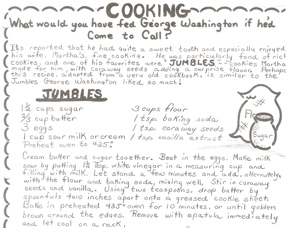 COOKING
What would you have fed George Washington if he'd
Come to Call?
It's reported that he had quite a sweet tooth and especially enjoyed
his wife, Martha's, fine cooking. He was particularly fond of rich
cooking, and one of his favorites were "JUMBLES" - cookies Martha
made for him, with caraway seeds adding a surprise flavor. Perhaps
this recipe, adapted from a very old cookbook, is similar to the
Jumbles George Washington liked so much!
JUMBLES
1½ cups sugar 3 cups flour
cup butter 1 tsp. baking soda
3 eggs 1 tsp. caraway seeds
1 cup sour milk or cream 1 tsp. vanilla extract
Preheat oven to
Flour
Sugar
Cream butter and sugar together. Beat in the eggs. Make milk
sour by putting 1½ tbsp. white vinegar in a measuring cup and
filling with milk. Let stand a few minutes and add, alternately
with the flour and baking soda, mixing well. Stir in caraway
seeds and vanilla. Using two teaspoons, drop batter by
spoonfuls two inches apart onto a greased cookie sheet.
Bake in preheated oven for 10 minutes, or until golden
brown around the edges. Remove with spatula immediately
and let cool on a rack.